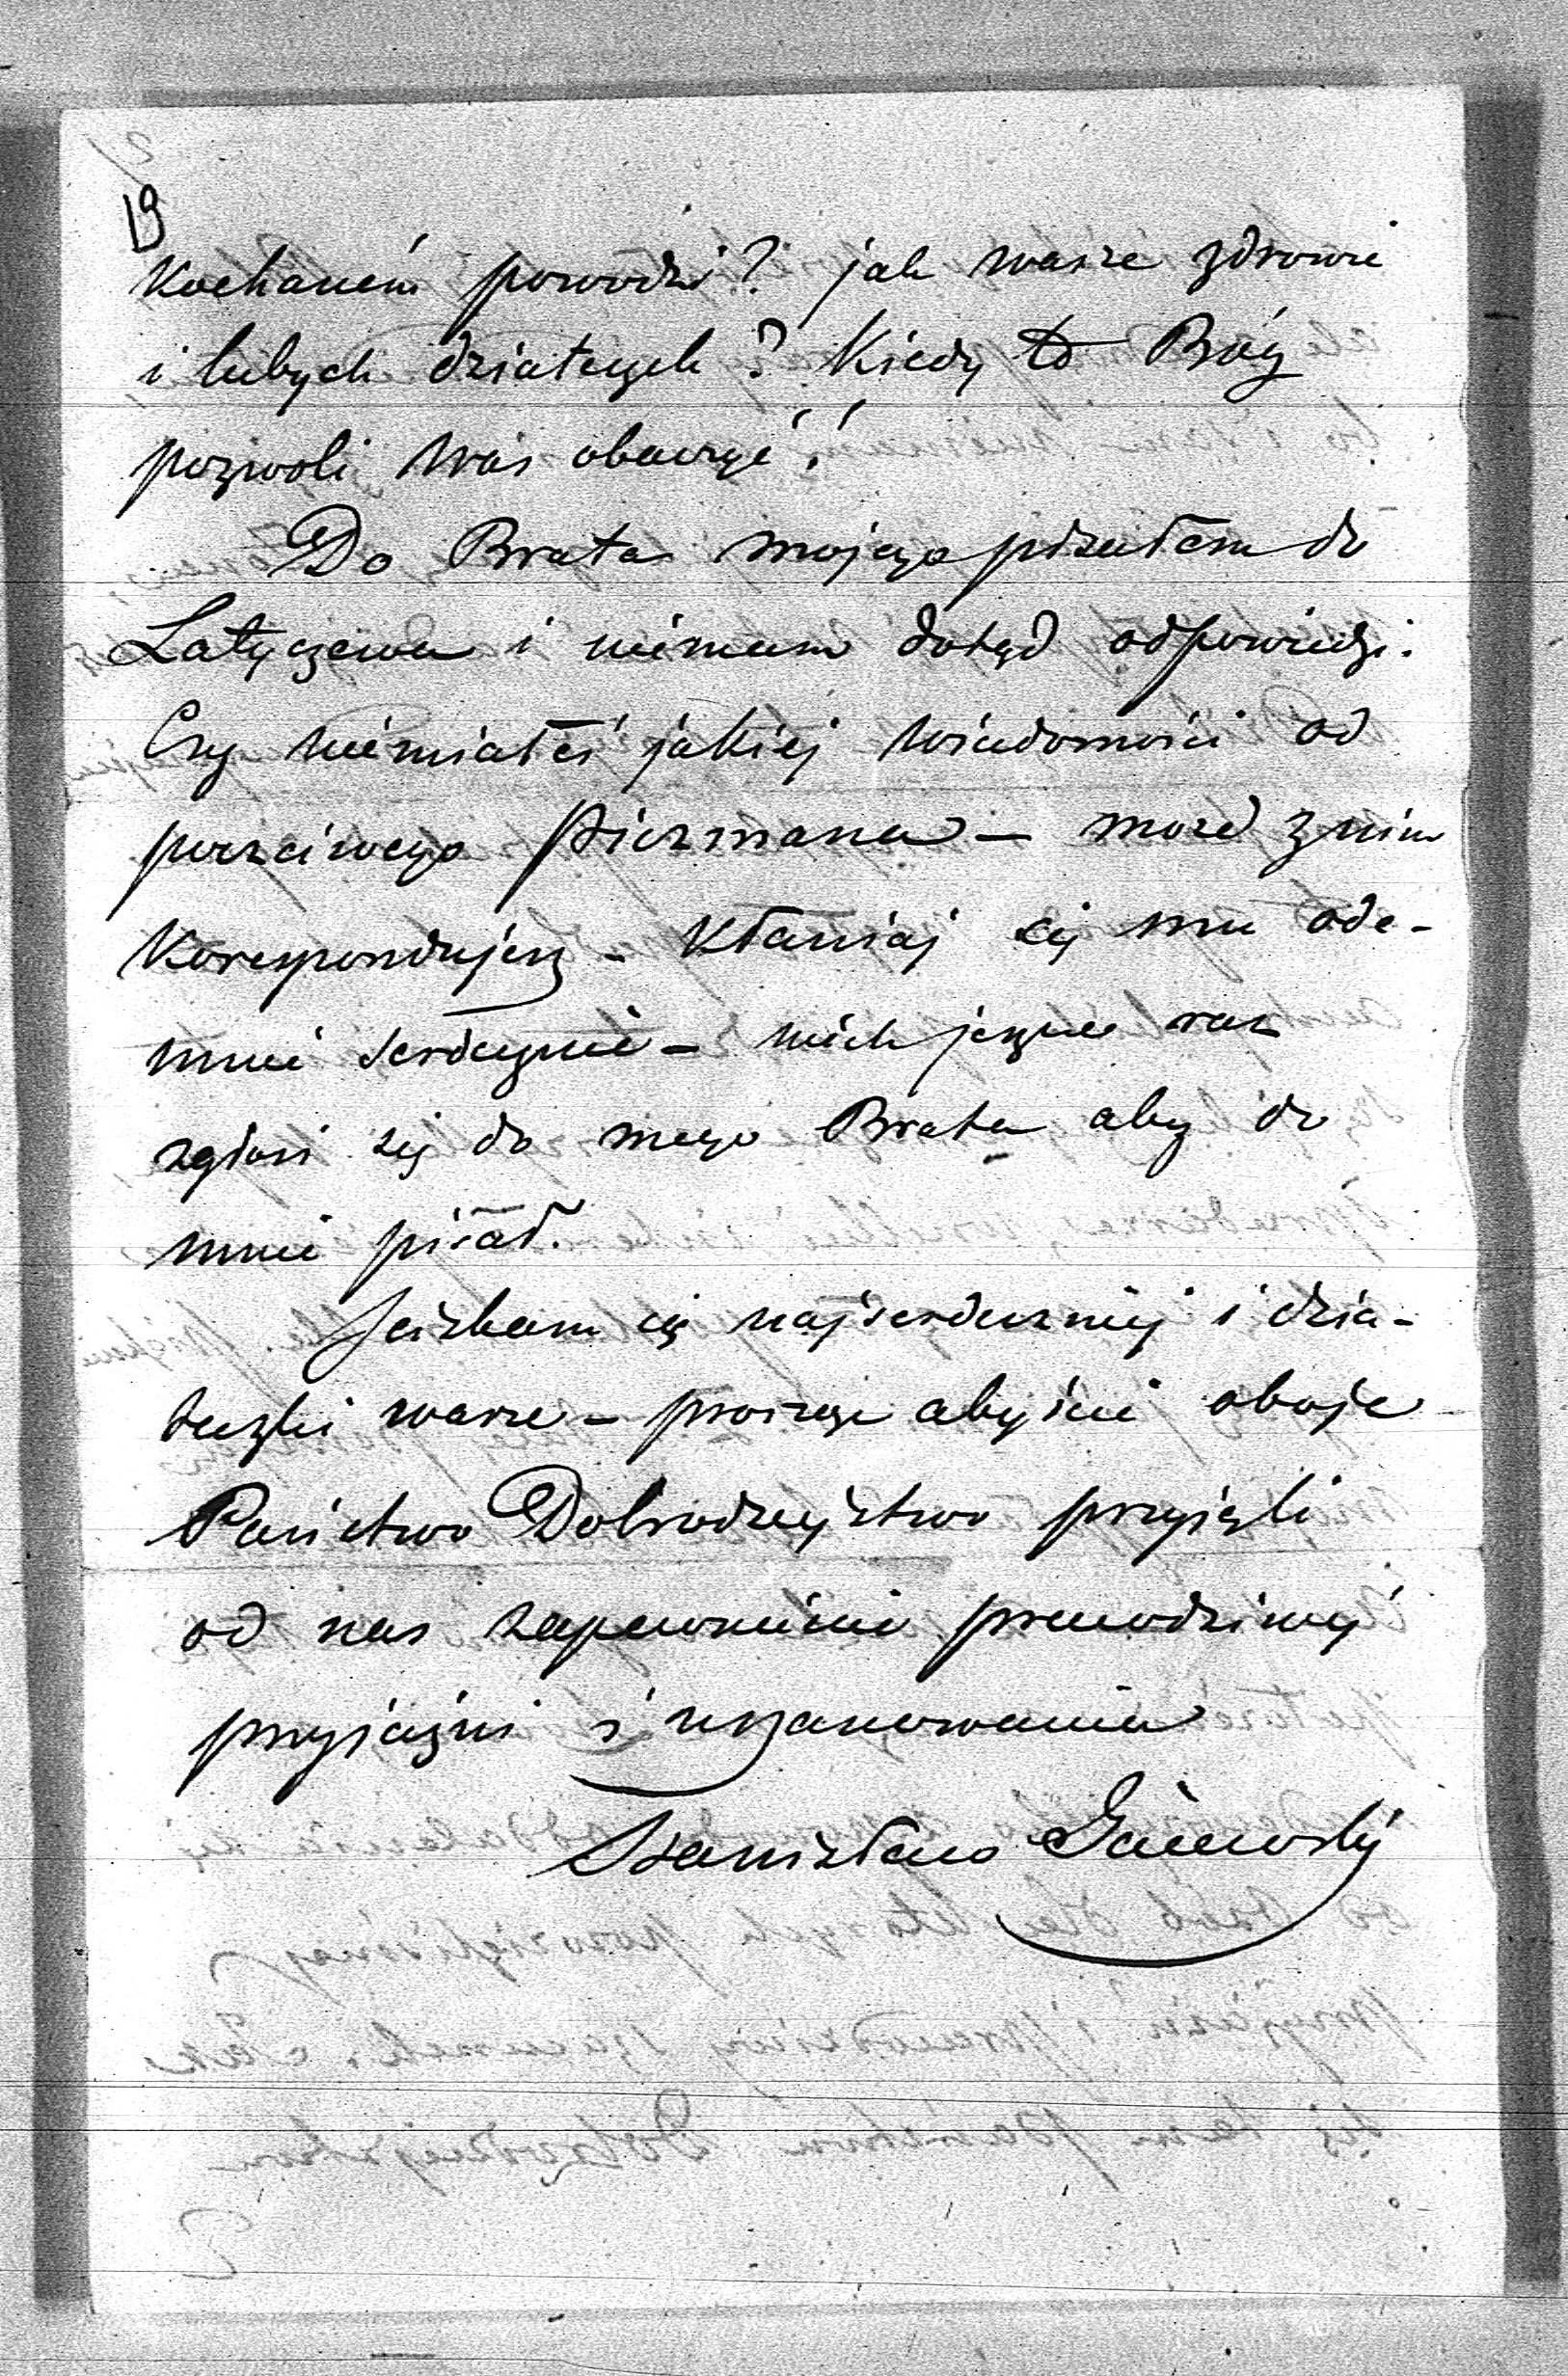 19
Kochaném powodzi? jak wasze zdrowie
i lubych dziateczek? Kiedy to Bóg
pozwoli was obaczyć!
Do Brata mojego pisałem do
Latyczewa i niemam dotąd odpowiedzi.
Czy niemiałeś jakiej wiadomości od
poczciwego Piczmana – może z nim
Korespondujesz – Kłaniaj się mu ode-
mnie serdecznie – niech jeszcze raz
zgłosi się do mego Brata aby do
mnie pisał.
Sciskam cię najserdeczniej i dzia-
teczki wasze – proszę abyście oboje
Państwo Dobrodziejstwo przyjęli
od nas zapewnienie prawdziwej
przyjaźni i uszanowania
Stanisław